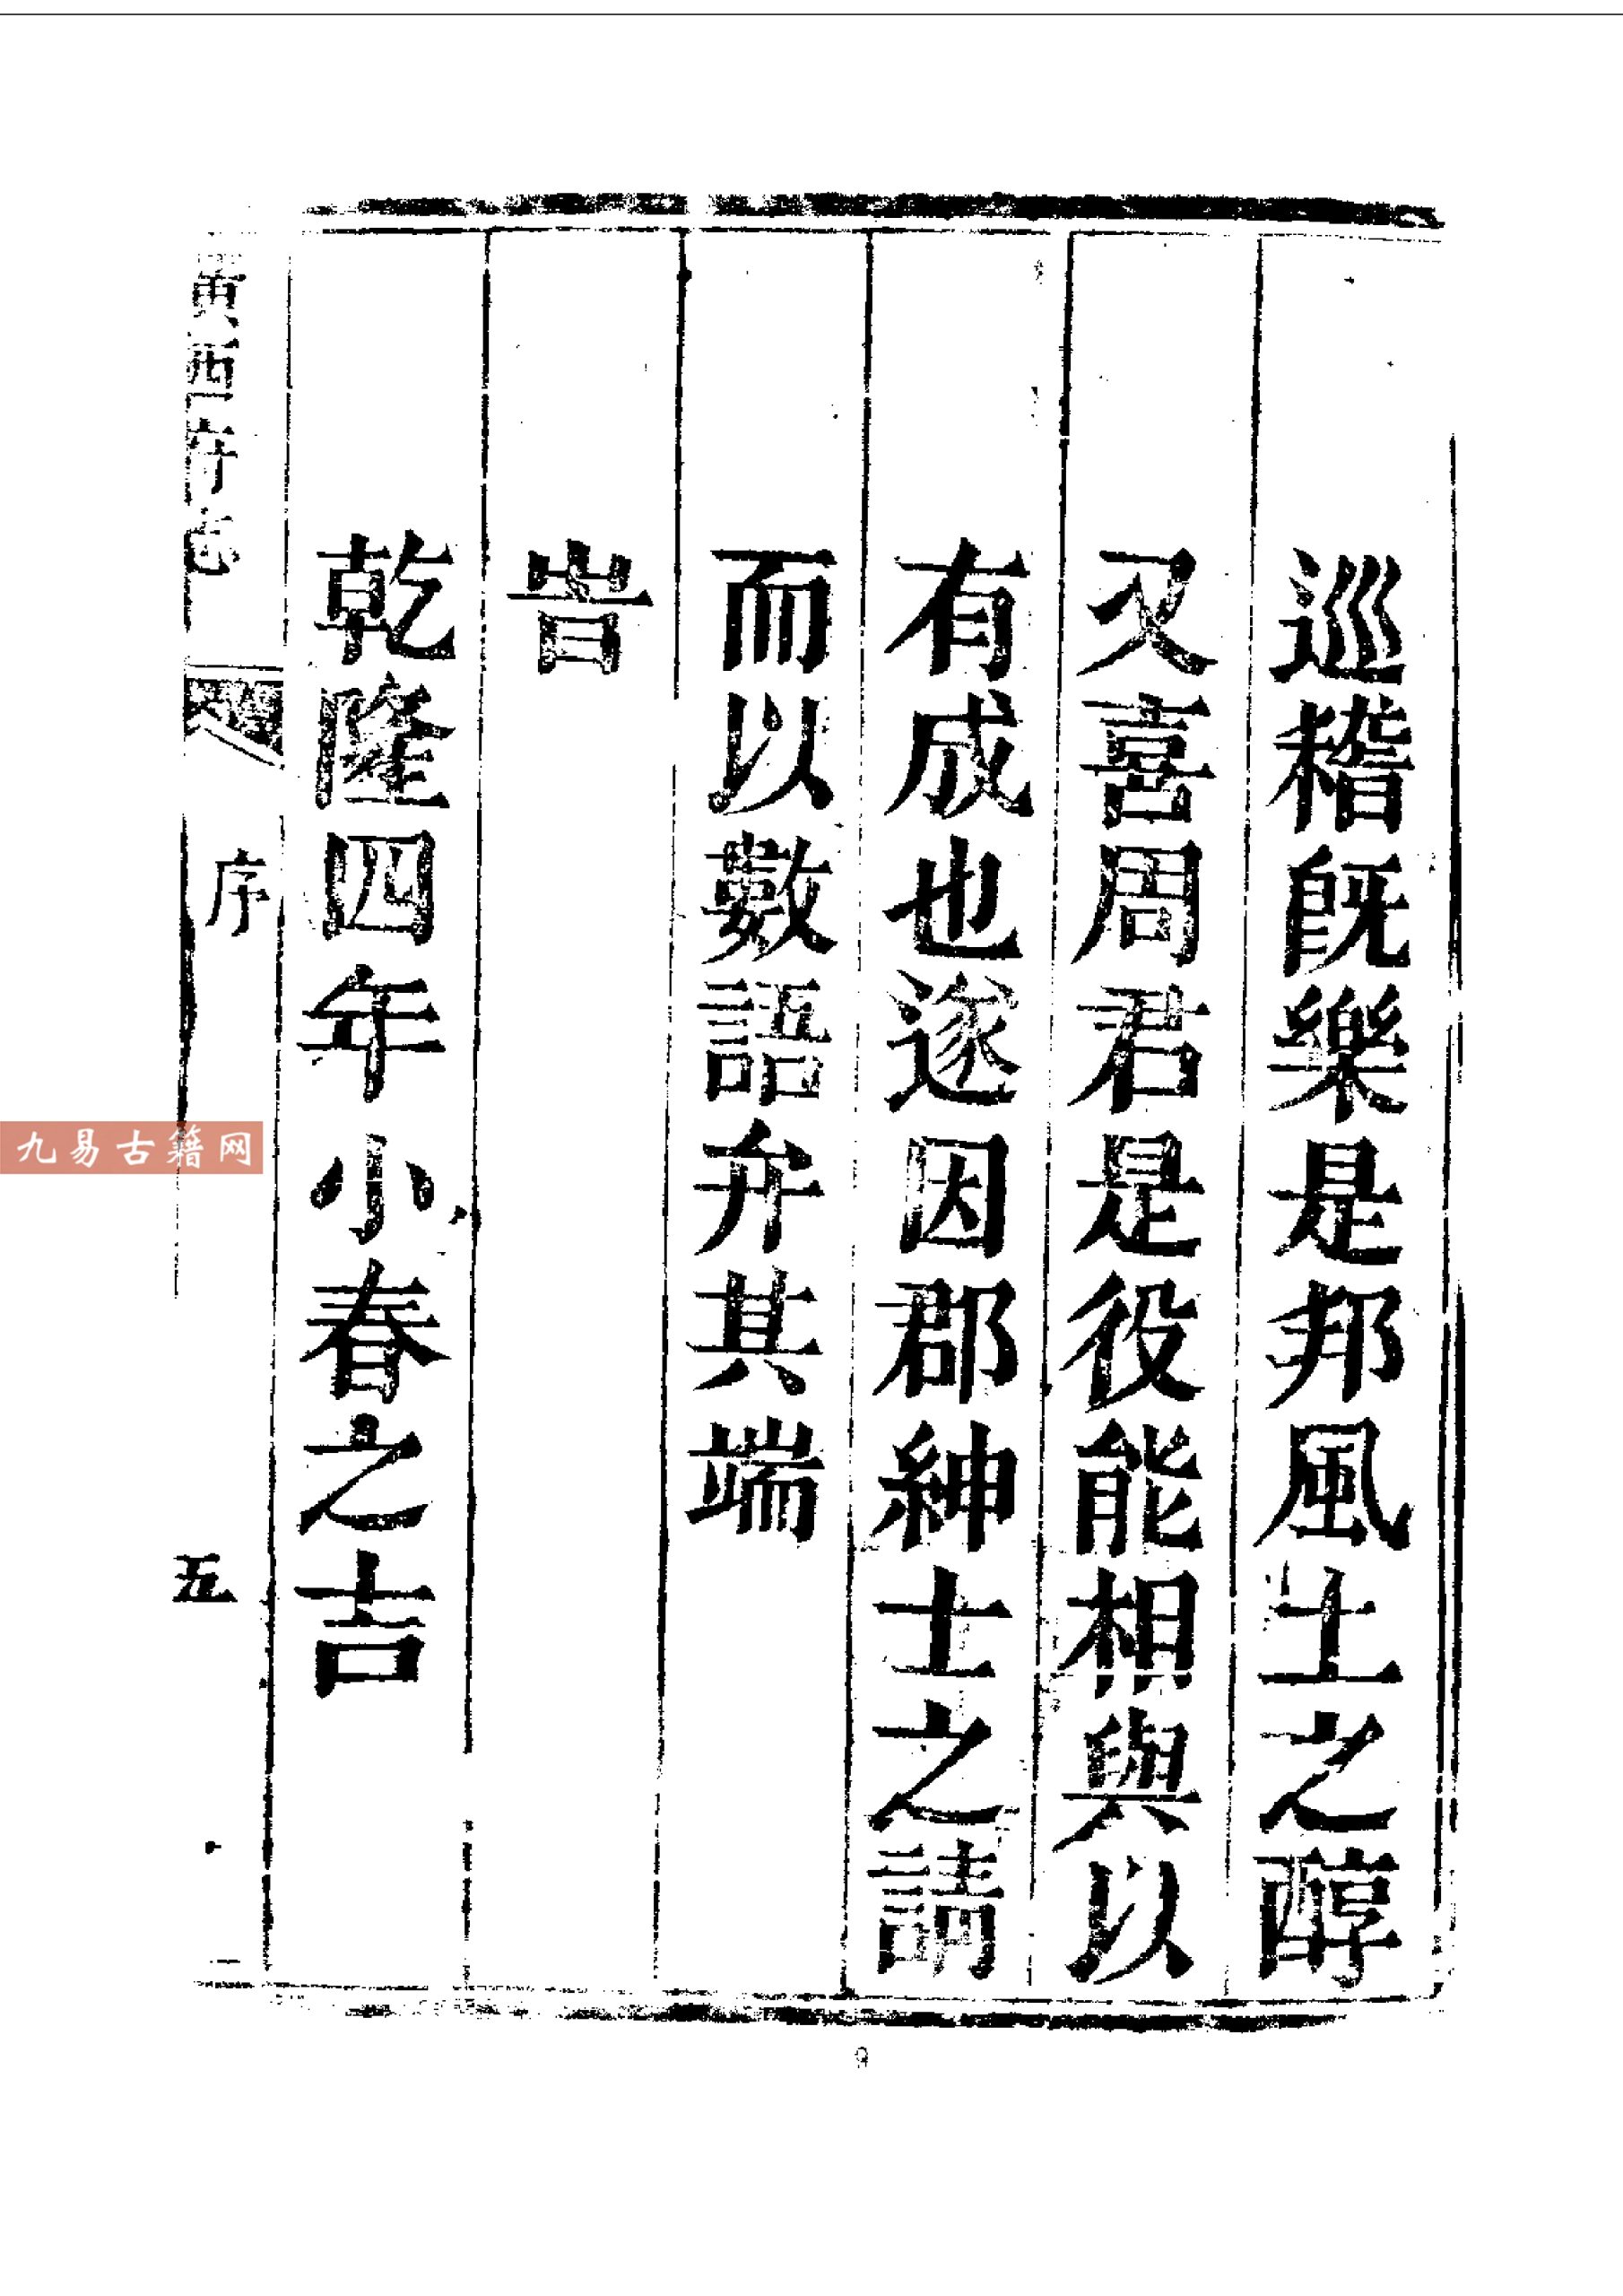 巡稽既樂是邦風土之醇
又喜周君是役能相與以
有成也遂因郡紳士之請
而以數語弁其端
旹
乾隆四年小春之吉
西府志
序
五
九易古籍网
9